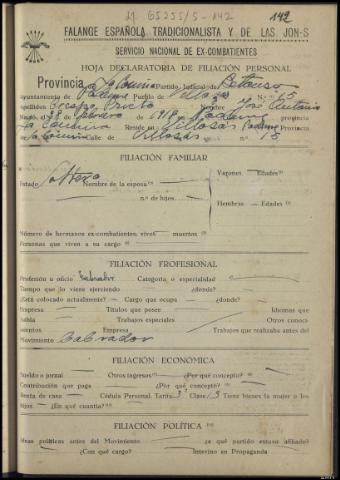 142
FALANGE ESPAÑOLA TRADICIONALISTA Y DE LAS JON-S
SERVICIO NACIONAL DE EX-COMBATIENTES
HOJA DECLARATORIA DE FILIACIÓN PERSONAL
Provincia La Coruña Partido Judicial de Betanzos
ayuntamiento de Paderne Pueblo de N.º 15
apellidos Crespo Prieto Nombre José Antonio
Nació, el de febrero de 1918 en Paderne provincia
La Coruña Reside en Villozás Paderne Provincia
La Coruña Calle de Villozás n.º 15
FILIACIÓN FAMILIAR
Estado Soltero Nombre de la esposa
n.º de hijos
Varones Edades
Hembras Edades
Número de hermanos ex-combatientes, vivos muertos
Personas que viven a su cargo
FILIACIÓN PROFESIONAL
Profesión u oficio Labrador Categoría o especialidad
Tiempo que lo viene ejerciendo ¿donde?
¿Está colocado actualmente? Cargo que ocupa ¿donde?
Empresa Títulos que posee Idiomas que
habla Trabajos especiales Otros conoci-
mientos Empresa Trabajos que realizaba antes del
Movimiento Labrador
FILIACIÓN ECONÓMICA
Sueldo o jornal Otros ingresos ¿Por qué concepto?
Contribución que paga ¿Por qué concepto?
Renta de casa Cédula Personal. Tarifa 3ª Clase 13 Tiene bienes la mujer o los
hijos ¿En qué cuantía?
FILIACIÓN POLÍTICA
Ideas políticas antes del Movimiento ¿a qué partido estuvo afiliado?
¿Con qué cargo? Intervino en Propaganda